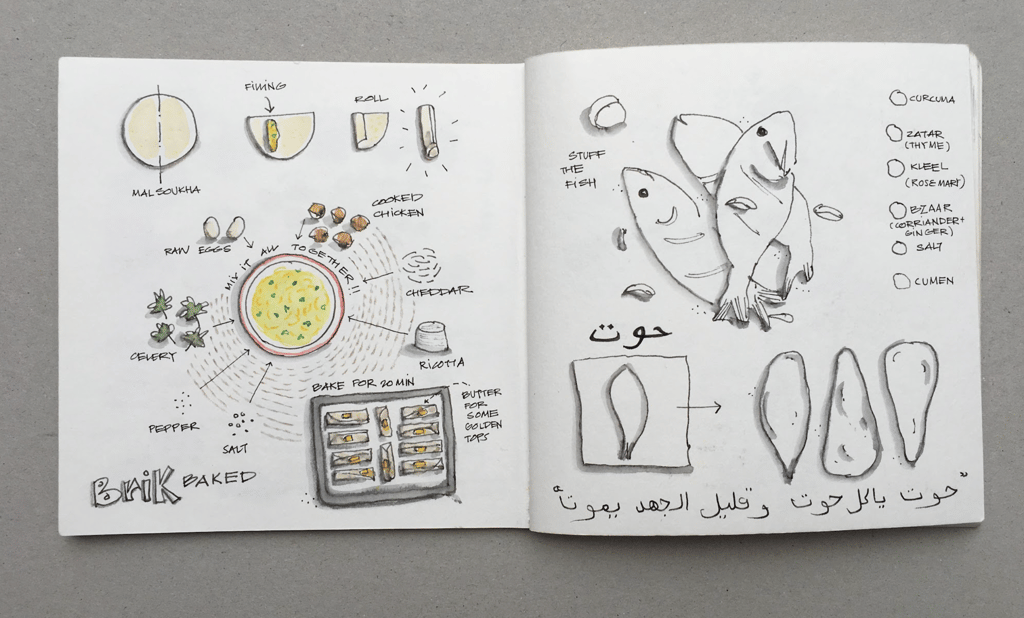 FILLING
ROLL
MALSOUKHA
COOKED
CHICKEN
RAW EGGS
MIX IT ALL TOGETHER!!
CHEDDAR
CELERY
RICOTTA
BAKE FOR 20 MIN
BUTTER
FOR
SOME
GOLDEN
TOPS
PEPPER
SALT
BRIK BAKED
STUFF
THE
FISH
CURCUMA
ZATAR
(THYME)
KLEEL
(ROSEMARY)
BZAAR
(CORRIANDER+
GINGER)
SALT
CUMEN
حوت
"حوت ياكل حوت وقليل الجهد يموت"